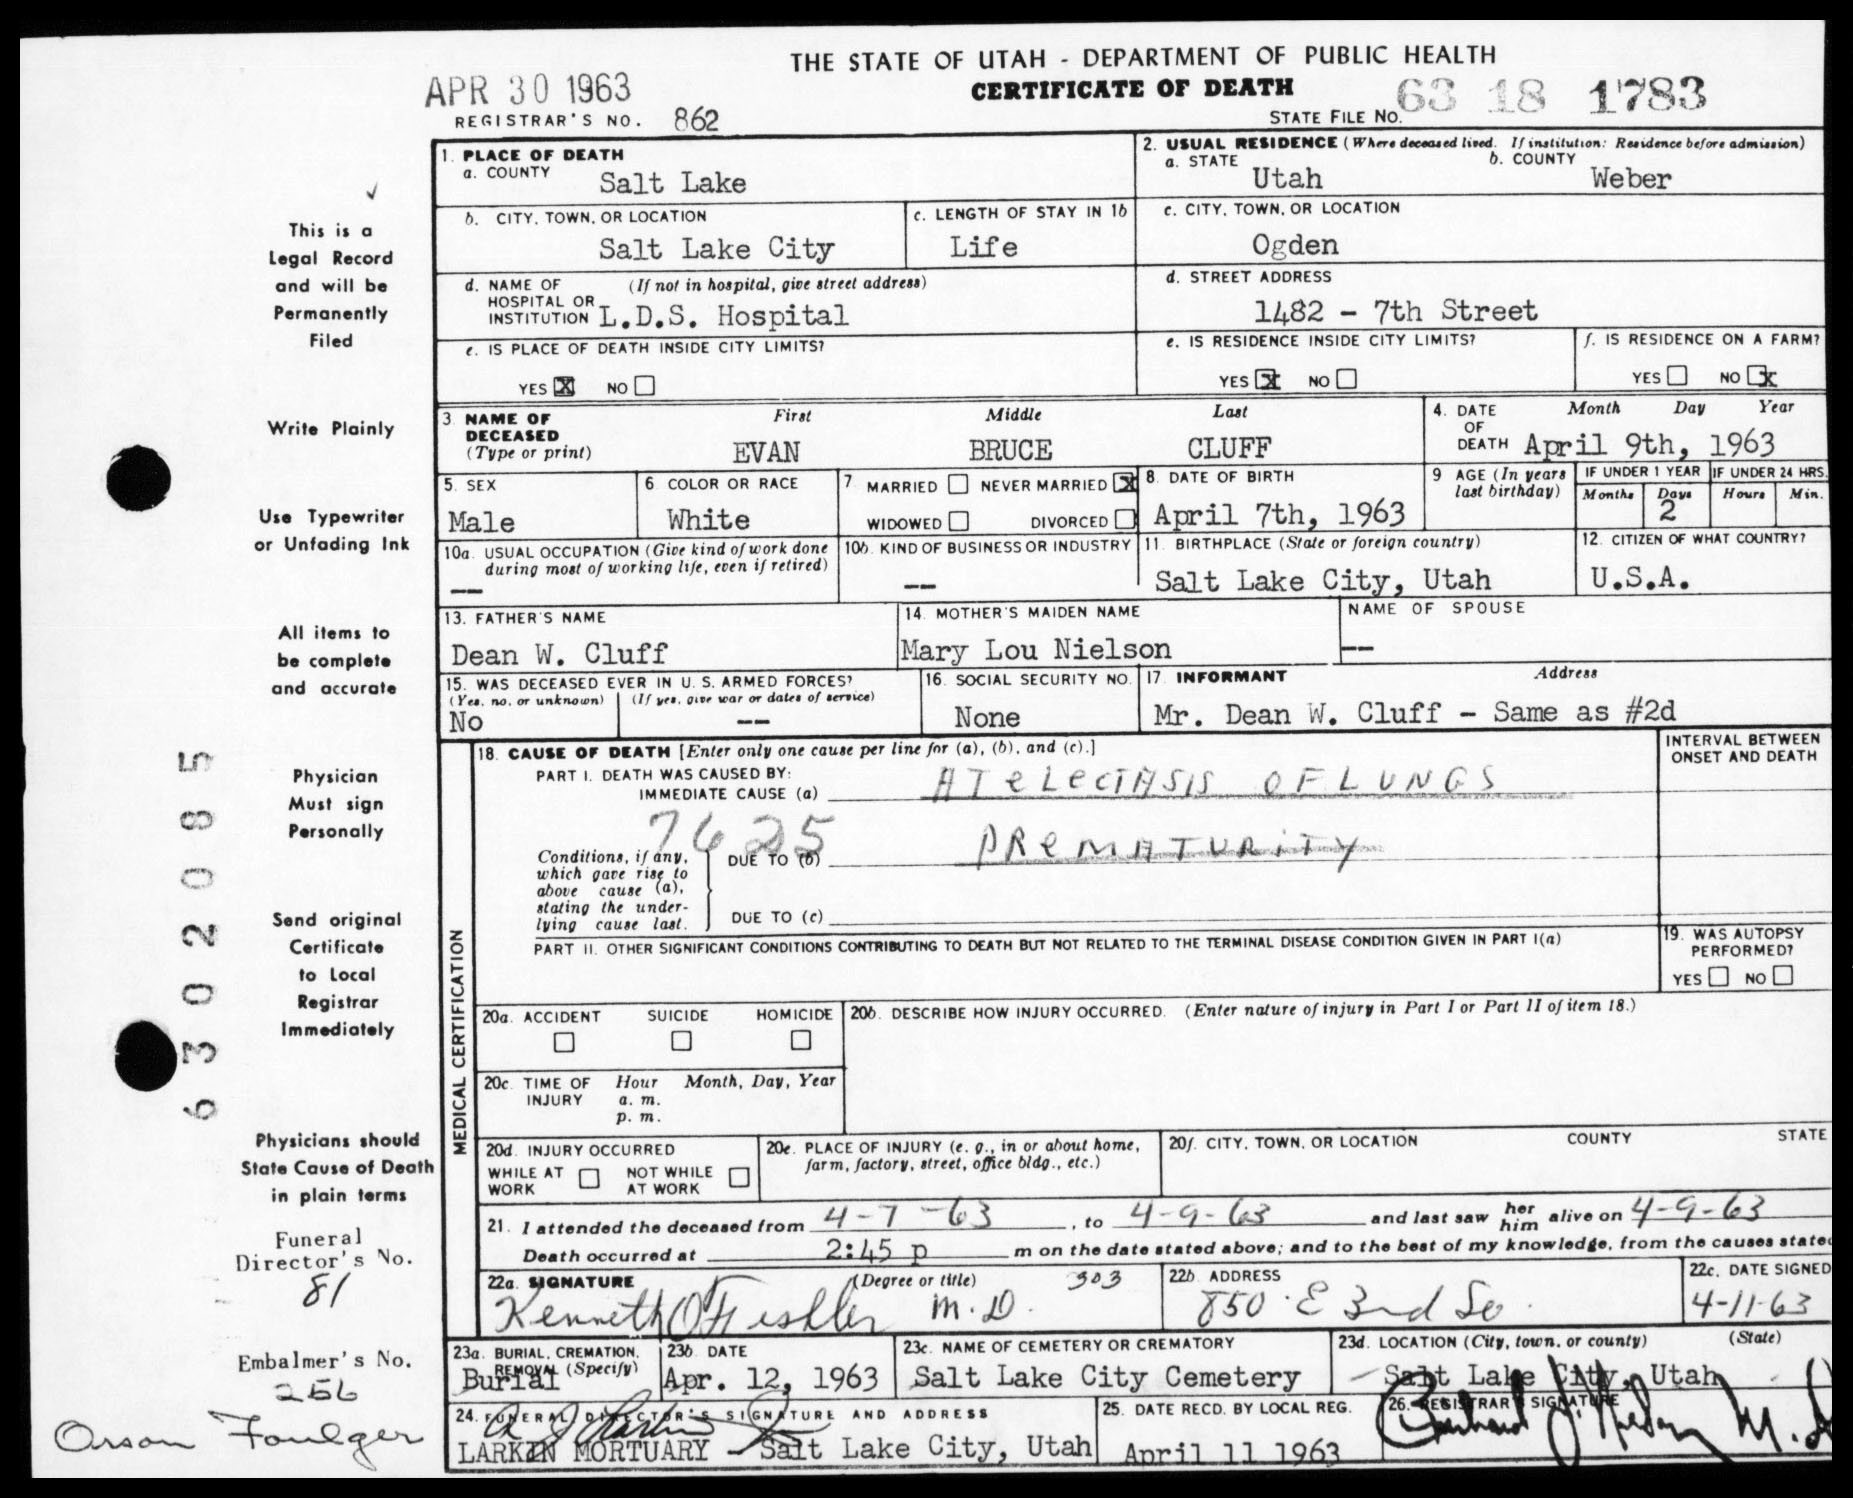 THE STATE OF UTAH - DEPARTMENT OF PUBLIC HEALTH
APR 30 1963
CERTIFICATE OF DEATH
STATE FILE NO. 63 18 1783
REGISTRAR'S NO. 862
1. PLACE OF DEATH
a. COUNTY Salt Lake
2. USUAL RESIDENCE (Where deceased lived. If institution: Residence before admission)
a. STATE Utah b. COUNTY Weber
b. CITY, TOWN, OR LOCATION Salt Lake City
c. LENGTH OF STAY IN 1b Life
c. CITY, TOWN, OR LOCATION Ogden
d. NAME OF HOSPITAL OR INSTITUTION (If not in hospital, give street address) L.D.S. Hospital
d. STREET ADDRESS 1482 - 7th Street
e. IS PLACE OF DEATH INSIDE CITY LIMITS?
YES X NO
e. IS RESIDENCE INSIDE CITY LIMITS?
YES X NO
f. IS RESIDENCE ON A FARM?
YES NO X
3 NAME OF DECEASED (Type or print)
First Middle Last
EVAN BRUCE CLUFF
4. DATE OF DEATH Month Day Year
April 9th, 1963
5. SEX Male
6 COLOR OR RACE White
7 MARRIED NEVER MARRIED X
WIDOWED DIVORCED
8. DATE OF BIRTH April 7th, 1963
9 AGE (In years last birthday)
IF UNDER 1 YEAR IF UNDER 24 HRS.
Months Days Hours Min.
2
10a. USUAL OCCUPATION (Give kind of work done during most of working life, even if retired)
--
10b. KIND OF BUSINESS OR INDUSTRY
--
11. BIRTHPLACE (State or foreign country)
Salt Lake City, Utah
12. CITIZEN OF WHAT COUNTRY?
U.S.A.
13. FATHER'S NAME
Dean W. Cluff
14. MOTHER'S MAIDEN NAME
Mary Lou Nielson
NAME OF SPOUSE
--
15. WAS DECEASED EVER IN U.S. ARMED FORCES?
(Yes, no, or unknown) (If yes, give war or dates of service)
No --
16. SOCIAL SECURITY NO.
None
17. INFORMANT Address
Mr. Dean W. Cluff - Same as #2d
18. CAUSE OF DEATH [Enter only one cause per line for (a), (b), and (c).]
PART I. DEATH WAS CAUSED BY:
IMMEDIATE CAUSE (a) ATELECTASIS OF LUNGS
7625
Conditions, if any, which gave rise to above cause (a), stating the underlying cause last.
DUE TO (b) PREMATURITY
DUE TO (c)
INTERVAL BETWEEN ONSET AND DEATH
PART II. OTHER SIGNIFICANT CONDITIONS CONTRIBUTING TO DEATH BUT NOT RELATED TO THE TERMINAL DISEASE CONDITION GIVEN IN PART I(a)
19. WAS AUTOPSY PERFORMED?
YES NO
MEDICAL CERTIFICATION
20a. ACCIDENT SUICIDE HOMICIDE
20b. DESCRIBE HOW INJURY OCCURRED. (Enter nature of injury in Part I or Part II of item 18.)
20c. TIME OF INJURY Hour Month, Day, Year
a. m.
p. m.
20d. INJURY OCCURRED
WHILE AT WORK NOT WHILE AT WORK
20e. PLACE OF INJURY (e. g., in or about home, farm, factory, street, office bldg., etc.)
20f. CITY, TOWN, OR LOCATION COUNTY STATE
21. I attended the deceased from 4-7-63, to 4-9-63 and last saw her him alive on 4-9-63
Death occurred at 2:45 p m on the date stated above; and to the best of my knowledge, from the causes state
22a. SIGNATURE (Degree or title) 303
Kenneth M.D.
22b. ADDRESS
850 E 3rd So.
22c. DATE SIGNED
4-11-63
23a. BURIAL, CREMATION, REMOVAL (Specify)
Burial
23b. DATE
Apr. 12, 1963
23c. NAME OF CEMETERY OR CREMATORY
Salt Lake City Cemetery
23d. LOCATION (City, town, or county) (State)
Salt Lake City, Utah
24. FUNERAL DIRECTOR'S SIGNATURE AND ADDRESS
LARKIN MORTUARY - Salt Lake City, Utah
25. DATE RECD. BY LOCAL REG.
April 11 1963
26. REGISTRAR SIGNATURE
M.D
This is a
Legal Record
and will be
Permanently
Filed
Write Plainly
Use Typewriter
or Unfading Ink
All items to
be complete
and accurate
Physician
Must sign
Personally
Send original
Certificate
to Local
Registrar
Immediately
Physicians should
State Cause of Death
in plain terms
Funeral
Director's No.
81
Embalmer's No.
256
Orson Foulger
6302085